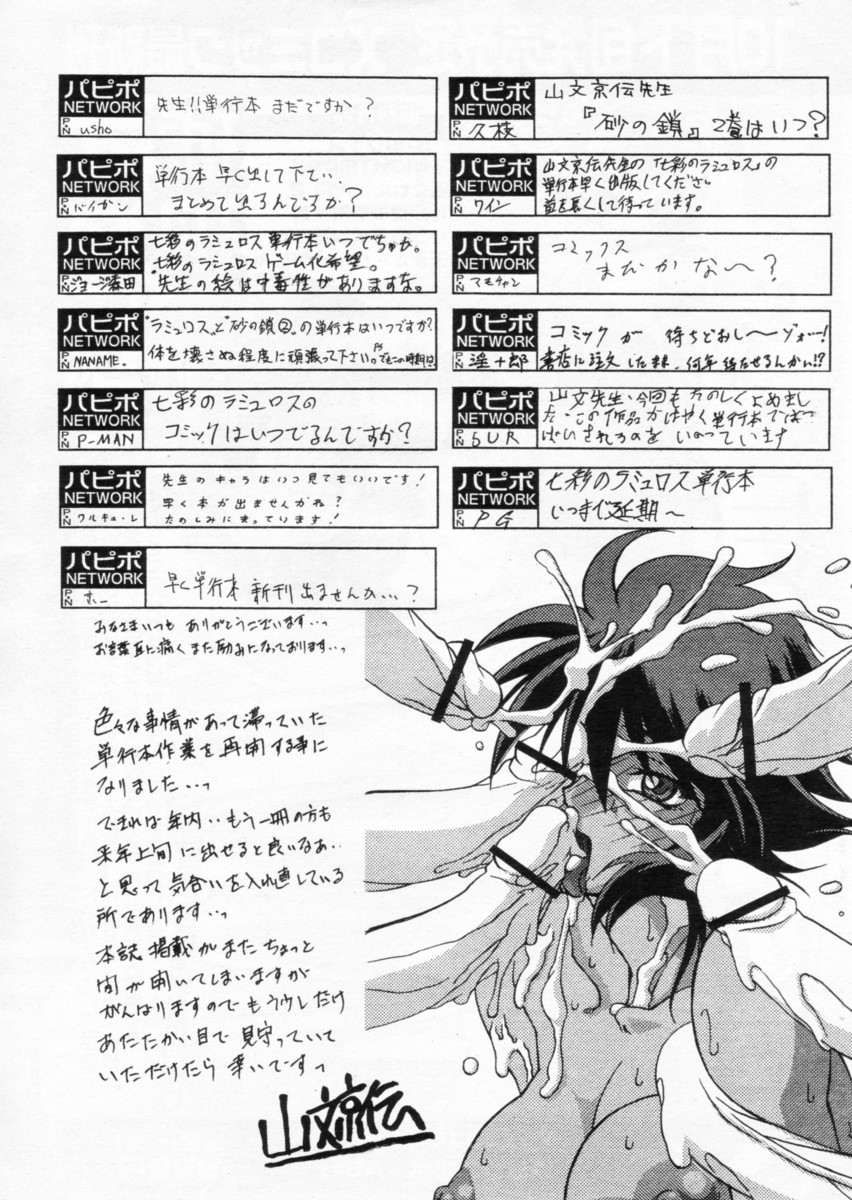 パピポ
NETWORK
PN usho
先生!!単行本 まだですか?
パピポ
NETWORK
PN バイガン
単行本 早く出して下さい
まとめて出るんでるか?
パピポ
NETWORK
PN ジョージ森田
七彩のラミュロス 単行本いつでちゅか。
七彩のラミュロス ゲーム化希望。
先生の絵は中毒性がありますな。
パピポ
NETWORK
PN NANAME.
"ラミュロス"と"砂の鎖②"の単行本はいつですか?
体を壊さぬ程度に頑張って下さい。
パピポ
NETWORK
PN P-MAN
七彩のラミュロスの
コミックはいつでるんですか?
パピポ
NETWORK
PN ワルキューレ
先生のキャラはいつ見てもいいです!
早く本が出ませんかね?
たのしみにまっています!
パピポ
NETWORK
PN ホー
早く単行本 新刊出ませんか…?
パピポ
NETWORK
PN 久枝
山文京伝先生
『砂の鎖』2巻はいつ?
パピポ
NETWORK
PN ワイン
山文京伝先生の「七彩のラミュロス」の
単行本早く出版してくださ
首を長くして待っています。
パピポ
NETWORK
PN マモチャン
コミックス
まだかな〜?
パピポ
NETWORK
PN 淫十郎
コミックが 待ちどおし〜ゾォー!
書店に注文したまま、何年待たせるんかい!?
パピポ
NETWORK
PN bUR
山文先生、今回もたのしくよめまし
た。この作品がはやく単行本では
ばいされるのを いのっています
パピポ
NETWORK
PN PG
七彩のラミュロス単行本
いつまで延期〜
みなさまいつも ありがとうございます…っ
お言葉耳に痛く また励みになっております…っ
色々な事情があって滞っていた
単行本作業を再開する事に
なりました…っ
できれば年内‥もう一冊の方も
来年上旬に出せると良いなあ‥
と思って気合いを入れ直している
所であります…っ
本誌掲載がまたちょっと
間が開いてしまいますが
がんばりますのでもう少しだけ
あたたかい目で見守っていて
いただけたら幸いですっ
山文京伝